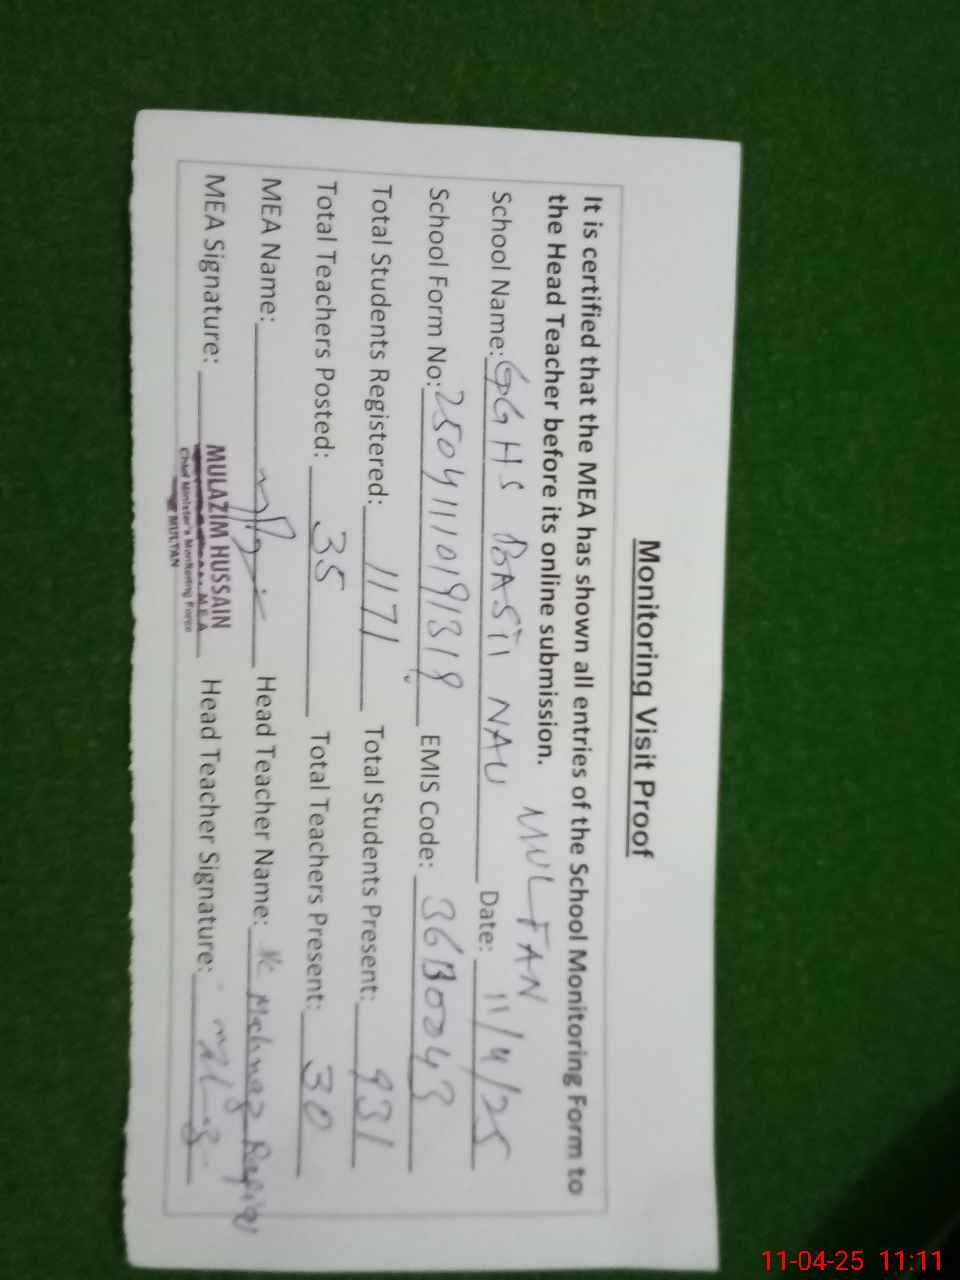 Monitoring Visit Proof
It is certified that the MEA has shown all entries of the School Monitoring Form to
the Head Teacher before its online submission.
MULTAN
School Name: GGHS BASTI NAU Date: 11/4/25
School Form No: 25041110191319 EMIS Code: 36130043
Total Students Registered: 1171 Total Students Present: 931
Total Teachers Posted: 35 Total Teachers Present: 30
MEA Name: Head Teacher Name: Mehnaz
MEA Signature: Head Teacher Signature:
MULAZIM HUSSAIN
M.E.A
Chief Minister's Monitoring Force
MULTAN
11-04-25 11:11